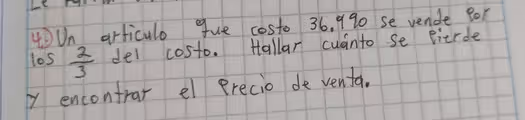 4.) Un articulo que costo 36.990 se vende por
los 2/3 del costo. Hallar cuánto se pierde
y encontrar el precio de venta.